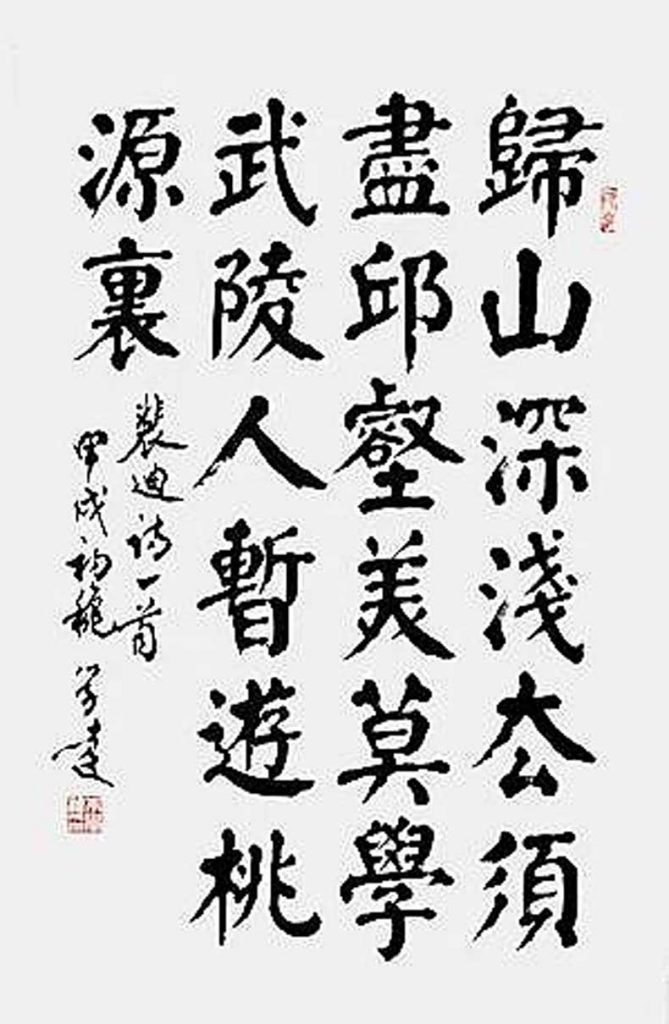 歸山深淺厺須
盡邱壑美莫學
武陵人暫遊桃
源裏
裴迪詩一首
甲戌初穐